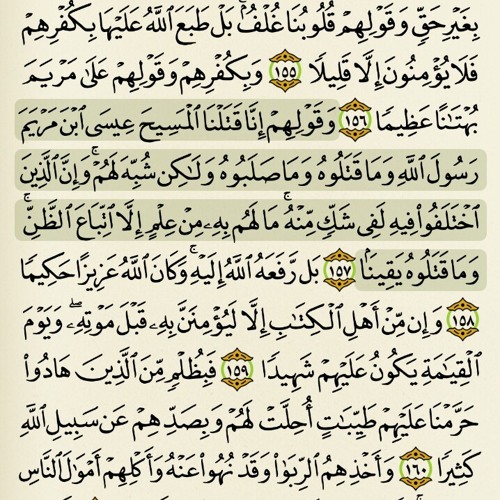 بِغَيْرِ حَقٍّ وَقَوْلِهِمْ قُلُوبُنَا غُلْفُۢ ۚ بَلْ طَبَعَ ٱللَّهُ عَلَيْهَا بِكُفْرِهِمْ
فَلَا يُؤْمِنُونَ إِلَّا قَلِيلًا ١٥٥ وَبِكُفْرِهِمْ وَقَوْلِهِمْ عَلَىٰ مَرْيَمَ
بُهْتَٰنًا عَظِيمًا ١٥٦ وَقَوْلِهِمْ إِنَّا قَتَلْنَا ٱلْمَسِيحَ عِيسَى ٱبْنَ مَرْيَمَ
رَسُولَ ٱللَّهِ وَمَا قَتَلُوهُ وَمَا صَلَبُوهُ وَلَٰكِن شُبِّهَ لَهُمْ ۚ وَإِنَّ ٱلَّذِينَ
ٱخْتَلَفُوا۟ فِيهِ لَفِى شَكٍّ مِّنْهُ ۚ مَا لَهُم بِهِۦ مِنْ عِلْمٍ إِلَّا ٱتِّبَاعَ ٱلظَّنِّ ۚ
وَمَا قَتَلُوهُ يَقِينًۢا ١٥٧ بَل رَّفَعَهُ ٱللَّهُ إِلَيْهِ ۚ وَكَانَ ٱللَّهُ عَزِيزًا حَكِيمًا
١٥٨ وَإِن مِّنْ أَهْلِ ٱلْكِتَٰبِ إِلَّا لَيُؤْمِنَنَّ بِهِۦ قَبْلَ مَوْتِهِۦ ۖ وَيَوْمَ
ٱلْقِيَٰمَةِ يَكُونُ عَلَيْهِمْ شَهِيدًا ١٥٩ فَبِظُلْمٍ مِّنَ ٱلَّذِينَ هَادُوا۟
حَرَّمْنَا عَلَيْهِمْ طَيِّبَٰتٍ أُحِلَّتْ لَهُمْ وَبِصَدِّهِمْ عَن سَبِيلِ ٱللَّهِ
كَثِيرًا ١٦٠ وَأَخْذِهِمُ ٱلرِّبَوٰا۟ وَقَدْ نُهُوا۟ عَنْهُ وَأَكْلِهِمْ أَمْوَٰلَ ٱلنَّاسِ